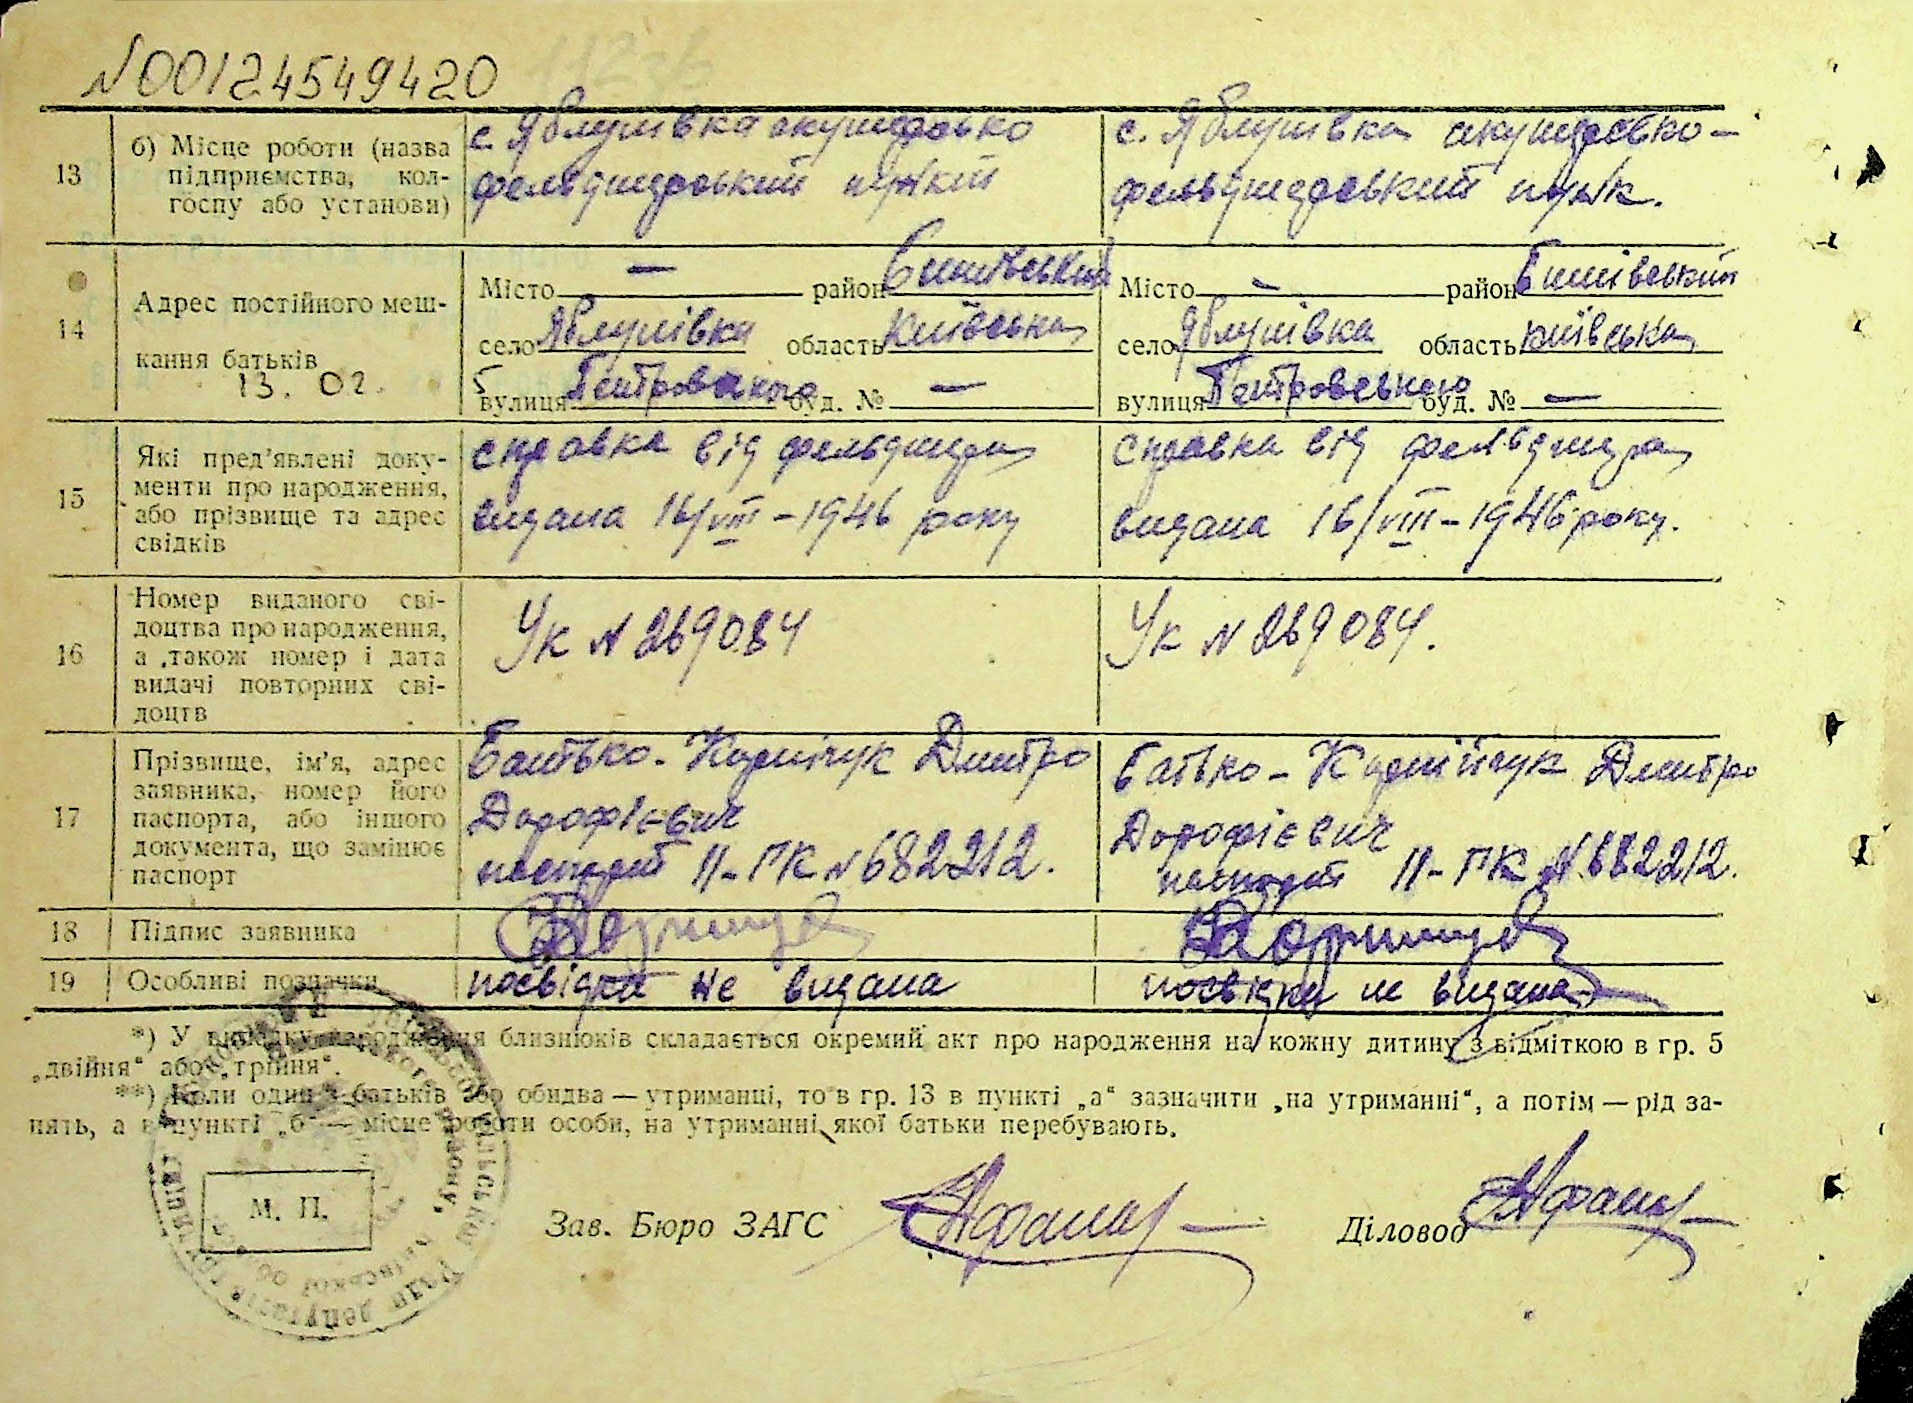 N00124549420
13
б) Місце роботи (назва
підприємства, кол-
госпу або установи)
с. Яблунівка акушерсько
фельдшерський пункт
с. Яблунівка акушерсько-
фельдшерський пункт.
14
Адрес постійного меш-
кання батьків
13. 02.
Місто — район
село Яблунівка область Київська
вулиця Петровского буд. № —
Місто — район
село Яблунівка область київська
вулиця Петровського буд. № —
15
Які пред'явлені доку-
менти про народження,
або прізвище та адрес
свідків
справка від фельдшера
видана 16/VIII-1946 року
справка від фельдшера
видана 16/VIII-1946 року.
16
Номер виданого сві-
доцтва про народження,
а також номер і дата
видачі повторних сві-
доцтв
Ук N 269084
Ук N 269084.
17
Прізвище, ім'я, адрес
заявника, номер його
паспорта, або іншого
документа, що замінює
паспорт
Батько - Дмитро
Дорофієвич
паспорт II-ГК N 682212.
батько - Дмитро
Дорофієвич
паспорт II-ГК N 682212.
18
Підпис заявника
19
Особливі позначки
посвідка не видана
посвідка не видана
*) У випадку народження близнюків складається окремий акт про народження на кожну дитину з відміткою в гр. 5
„двійня“ або „трійня“.
**) Коли один з батьків або обидва — утриманці, то в гр. 13 в пункті „а“ зазначити „на утриманні“, а потім — рід за-
нять, а в пункті „б“ — місце роботи особи, на утриманні якої батьки перебувають.
М. П.
Зав. Бюро ЗАГС
Діловод